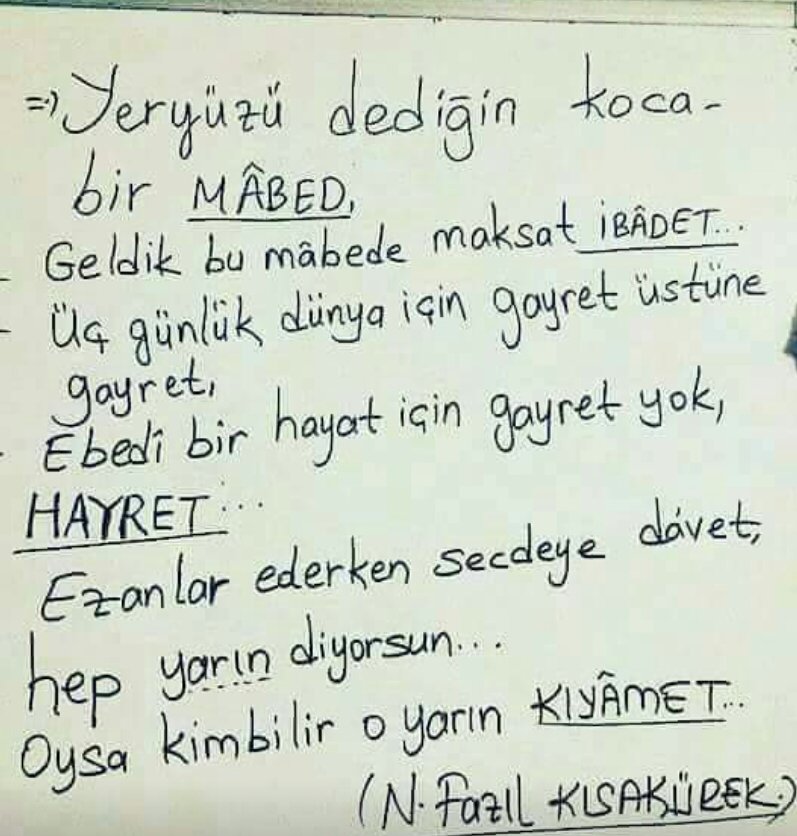 =) Yeryüzü dediğin koca-
bir MÂBED,
- Geldik bu mâbede maksat İBÂDET...
- Üç günlük dünya için gayret üstüne
gayret,
- Ebedî bir hayat için gayret yok,
HAYRET...
Ezanlar ederken secdeye dávet,
hep yarın diyorsun...
Oysa kimbilir o yarın KIYÂMET...
(N. Fazıl KISAKÜREK.)